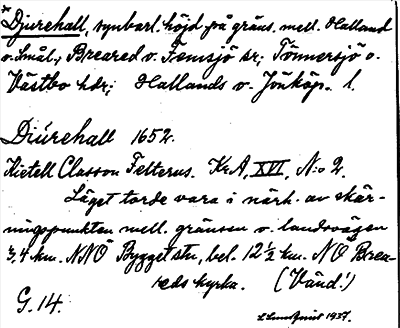 * Djurehall, synbarl. höjd på gräns. mell. Halland
o. Smål., Breared o. Femsjö sr; Tönnersjö o.
Västbo hdr; Hallands o. Jönköp. l.
Diurehall 1652.
Kietell Classon Felterus. Kr.A, XVI, No 2.
Läget torde vara i närh. av skär-
ningspunkten mell. gränsen o. landsvägen
3,4 km. NNÖ Bygget stn, bel. 12 ½ km. NÖ Brea-
reds kyrka. (Vänd!)
G. 14.
1937.